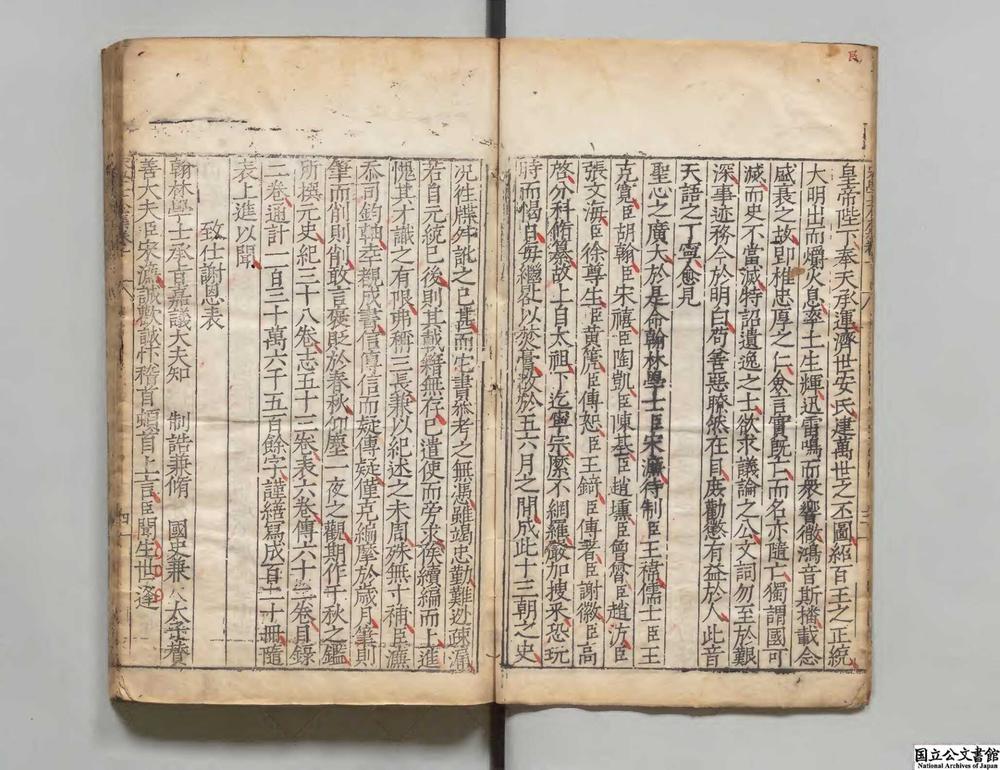 皇帝陛下奉天承運濟世安民建萬世之丕圖紹百王之正統
大明出而爝火息率土生輝迅雷鳴而衆響微鴻音斯播載念
盛衰之故卽推忠厚之仁僉言實旣亡而名亦隨亡獨謂國可
滅而史不當滅特詔遺逸之士欲求議論之公文詞勿至於艱
深事迹務令於明白苟善惡瞭然在目庶勸懲有益於人此音
天語之丁寧愈見
聖心之廣大於是命翰林學士臣宋濂待制臣王禕儒士臣王
克寬臣胡翰臣宋禧臣陶凱臣陳基臣趙壎臣曾魯臣趙汸臣
張文海臣徐尊生臣黃篪臣傅恕臣王錡臣傅著臣謝徽臣高
啓分科脩纂故上自太祖下迄寧宗靡不網羅嚴加搜采恐玩
時而愒日每繼晷以焚膏故於五六月之間成此十三朝之史
况往牒舛訛之已甚而它書叅考之無憑雖竭忠勤難迯疎漏
若自元統已後則其載籍無存已遣使而旁求俟續編而上進
愧其才識之有限弗稱三長兼以紀述之未周殊無寸補臣濂
忝司鈞軸幸覩成書信傳信而疑傳疑僅克編摩於歲月筆則
筆而削則削敢言褒貶於春秋仰塵一夜之觀期作千秋之鑑
所撰元史紀三十八卷志五十三卷表六卷傳六十三卷目錄
二卷通計一百三十萬六千五百餘字謹繕寫成百二十冊隨
表上進以聞
致仕謝恩表
翰林學士承旨嘉議大夫知 制誥兼脩 國史兼 太子贊
善大夫臣宋濂誠歡誠忭稽首頓首上言臣聞生世逢
四
国立公文書館
National Archives of Japan